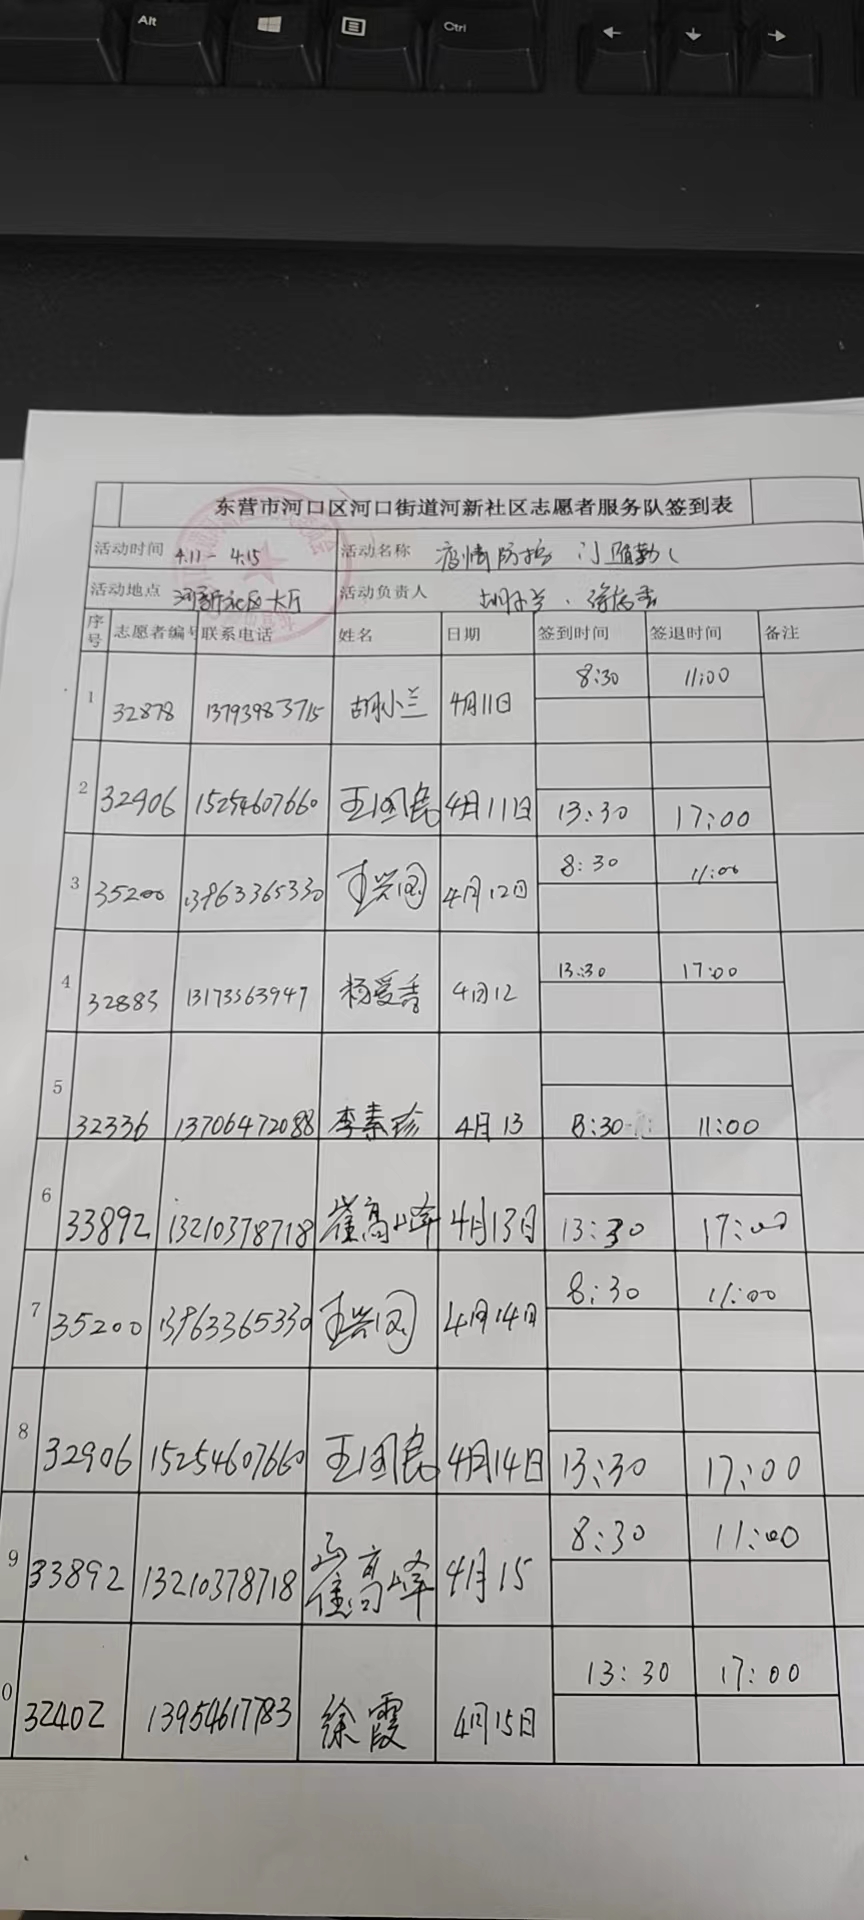 Alt
Ctrl
东营市河口区河口街道河新社区志愿者服务队签到表
活动时间 4.11-4.15 活动名称 疫情防控 门值勤
活动地点 河新社区大厅 活动负责人 胡小兰、
序号 志愿者编号 联系电话 姓名 日期 签到时间 签退时间 备注
1 32878 13793983715 胡小兰 4月11日 8:30 11:00
2 32906 15254607660 王国民 4月11日 13:30 17:00
3 35200 13963365330 4月12日 8:30 11:00
4 32883 13173563947 杨爱香 4月12 13:30 17:00
5 32336 13706472088 李素珍 4月13 8:30 11:00
6 33892 13210378718 崔高峰 4月13日 13:30 17:00
7 35200 13963365330 4月14日 8:30 11:00
8 32906 15254607660 王国民 4月14日 13:30 17:00
9 33892 13210378718 崔高峰 4月15 8:30 11:00
0 32402 13954617783 徐霞 4月15日 13:30 17:00